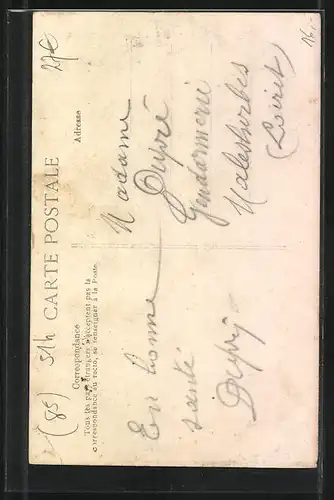 CARTE POSTALE
Correspondance
Tous les pays étrangers n'acceptent pas la
correspondance au recto, se renseigner à la Poste.
Adresse
En bonne
santé
Madame
Dupré
Gendarmerie
Malesherbes
(Loiret)
27€
16.-
(85)